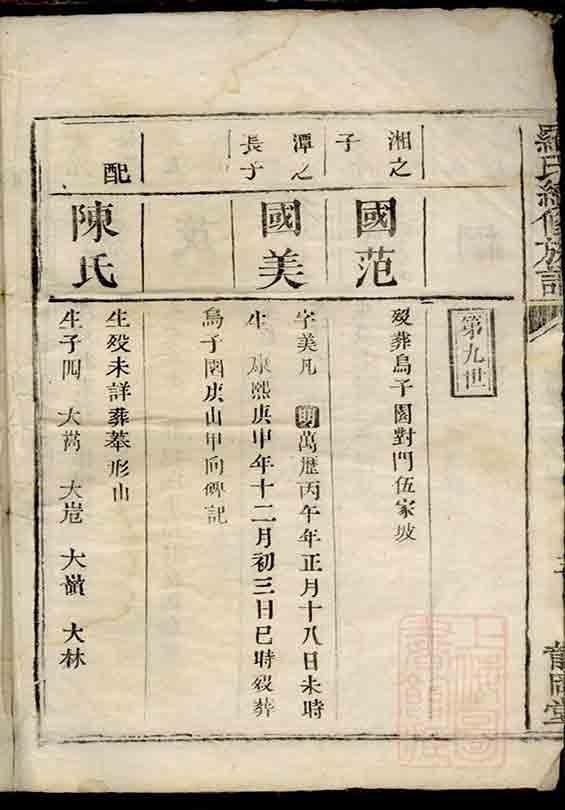 羅氏續修族譜
第九世
湘之子
國范
歿葬鳥子園對門伍家坡
潭之長子
國美
字美凡 明萬歷丙午年正月十八日未時
生 康熙庚申年十二月初三日巳時歿葬
鳥子園庚山甲向碑記
配
陳氏
生歿未詳葬墓形山
生子四 大嵩 大岜 大嶺 大林